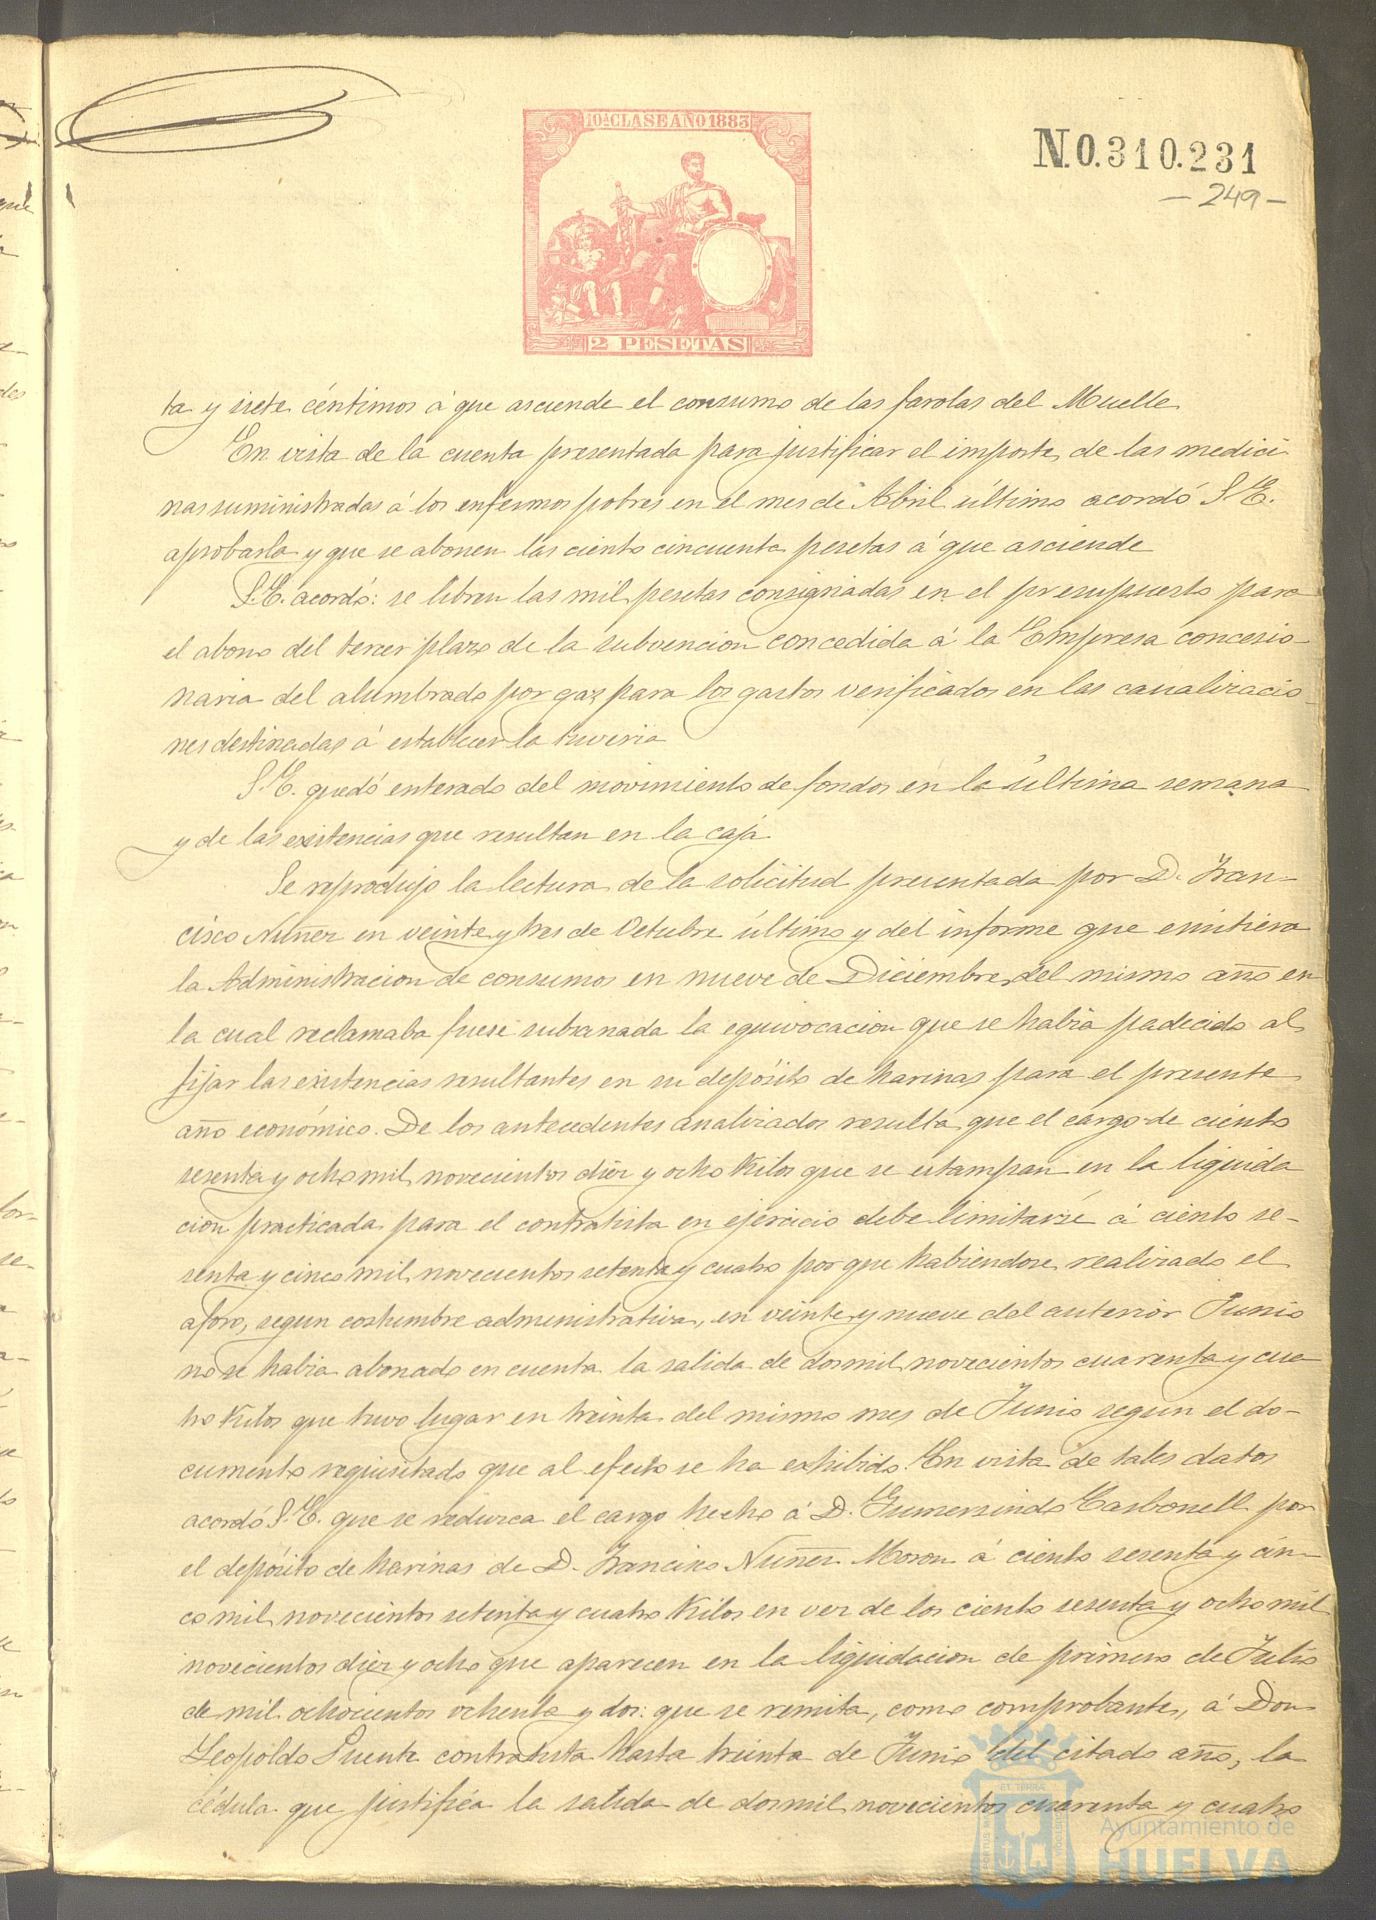 10ª CLASE AÑO 1883
N.0.310.231
- 249 -
2 PESETAS
ta y siete céntimos á que asciende el consumo de las farolas del Muelle
En vista de la cuenta presentada para justificar el importe de las medici
nas suministradas á los enfermos pobres en el mes de Abril último acordó S.E.
aprobarla y que se abonen las ciento cincuenta pesetas á que asciende
S.E. acordó: se libren las mil pesetas consignadas en el presupuesto para
el abono del tercer plazo de la subvencion concedida á la Empresa concesio-
naria del alumbrado por gaz para los gastos verificados en las canalizacio-
nes destinadas á establecer la tuveria
S.E. quedó enterado del movimiento de fondos en la última semana
y de las existencias que resultan en la caja
Se reprodujo la lectura de la solicitud presentada por D. Fran-
cisco Nuñez en veinte y tres de Octubre último y del informe que emitiera
la Administracion de consumos en nueve de Diciembre del mismo año en
la cual reclamaba fuese subsanada la equivocacion que se habia padecido al
fijar las existencias resultantes en su depósito de harinas para el presente
año económico. De los antecedentes analizados resulta que el cargo de ciento
sesenta y ocho mil novecientos diez y ocho Kilos que se estampan en la liquida
cion practicada para el contratista en ejercicio debe limitarse á ciento se-
senta y cinco mil novecientos setenta y cuatro por que habiendose realizado el
aforo, segun costumbre administrativa, en veinte y nueve del anterior Junio
no se habia abonado en cuenta la salida de dos mil novecientos cuarenta y cua
tro Kilos que tuvo lugar en treinta del mismo mes de Junio segun el do-
cumento requisitado que al efecto se ha exhibido. En vista de tales datos
acordó S.E. que se reduzca el cargo hecho á D. Gumersindo Carbonell por
el depósito de harinas de D. Francisco Nuñez Moron á ciento sesenta y cin-
co mil novecientos setenta y cuatro Kilos en vez de los ciento sesenta y ocho mil
novecientos diez y ocho que aparecen en la liquidacion de primero de Julio
de mil ochocientos ochenta y dos: que se remita, como comprobante, á Don
Leopoldo Puente contratista hasta treinta de Junio del citado año, la
cédula que justifica la salida de dos mil novecientos cuarenta y cuatro
Ayuntamiento de
HUELVA